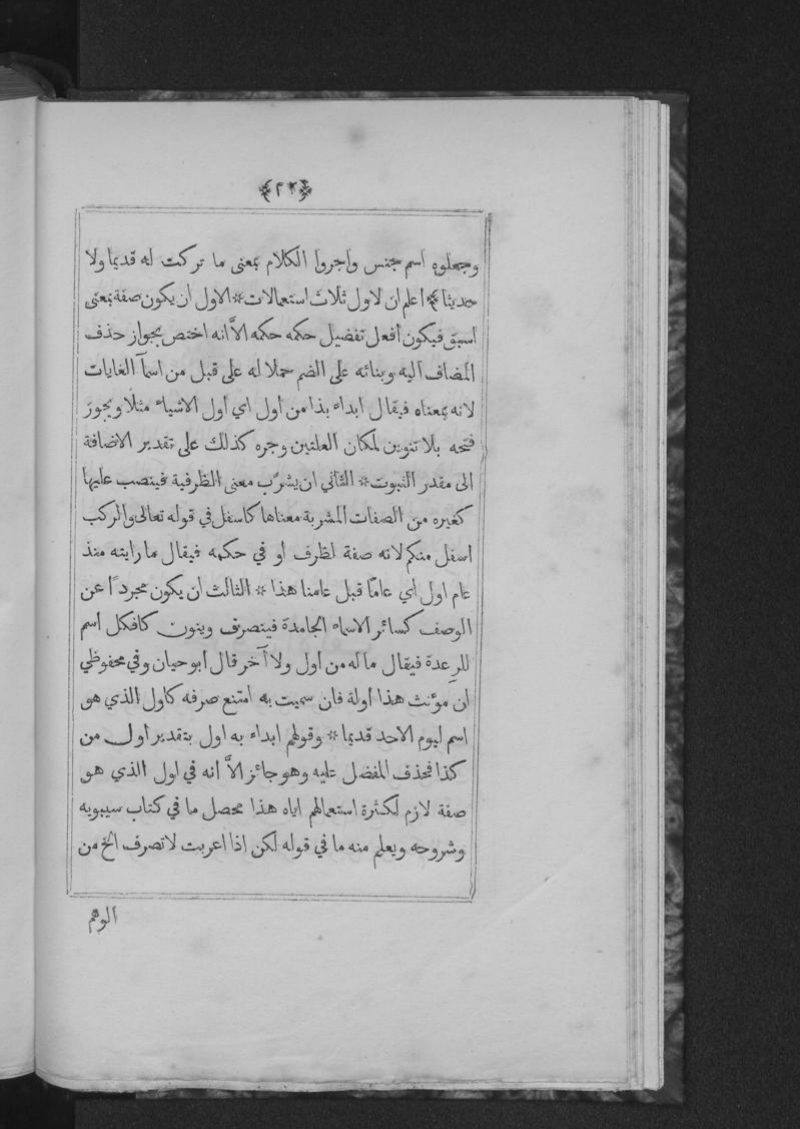 ﴿٢٢﴾
وجعلوه اسم جنس واجروا الكلام بمعنى ما تركت له قديما ولا
حديثا﴾ اعلم ان لاول ثلاث استعمالات * الاول ان يكون صفة بمعنى
اسبق فيكون أفعل تفضيل حكمه حكمه الاَّ انه اختص بجواز حذف
المضاف اليه وبنائه على الضم حملا له على قبل من اسمآ الغايات
لانه بمعناه فيقال ابداء بذا من أول اي أول الاشياء مثلا ويجوز
فتحه بلا تنوين لمكان العلتين وجره كذلك على تقدير الاضافة
الى مقدر الثبوت * الثاني ان يشرَّب معنى الظرفية فينصب عليها
كغيره من الصفات المشربة معناها كاسفل في قوله تعالى والركب
اسفل منكم لانه صفة لظرف او في حكمه فيقال ما رايته منذ
عام اول اي عامًا قبل عامنا هذا * الثالث ان يكون مجردًا عن
الوصف كسائر الاسماء الجامدة فينصرف وينون كافكل اسم
للرِعدة فيقال ماله من اول ولا آخر قال أبو حيان وفي محفوظي
ان مؤنث هذا أولة فان سميت به امتنع صرفه كاول الذي هو
اسم ليوم الاحد قديما * وقولهم ابداء به اول بتقدير أول من
كذا فحذف المفضل عليه وهو جائز الاَّ انه في اول الذي هو
صفة لازم لكثرة استعمالهم اياه هذا محصل ما في كتاب سيبويه
وشروحه ويعلم منه ما في قوله لكن اذا اعربت لا تصرف الخ من
الوهم